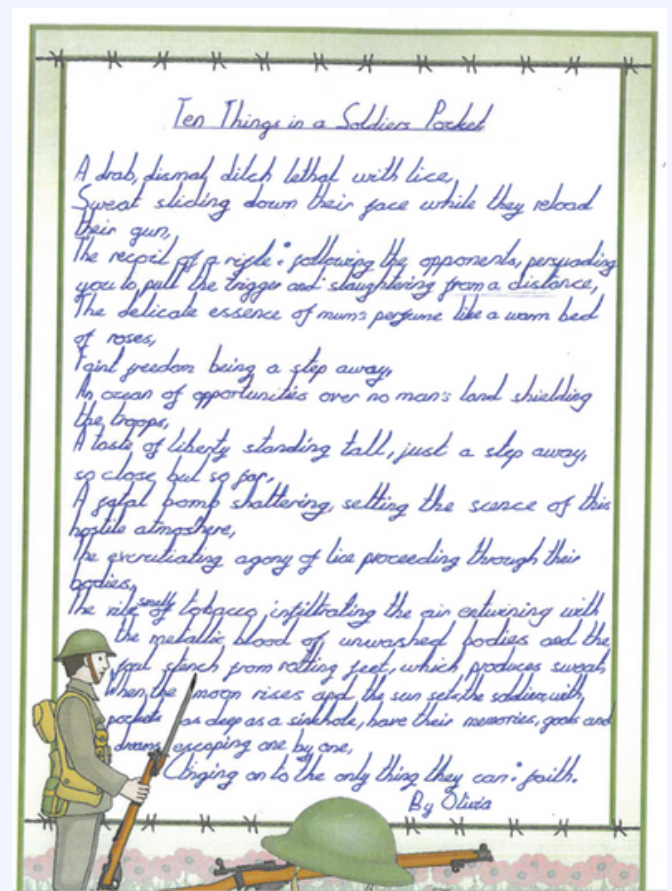 Ten Things in a Soldiers Pocket
A drab, dismal ditch lethal with lice,
Sweat sliding down their face while they reload
their gun,
The recoil of a rifle: following the opponents, persuading
you to pull the trigger and slaughtering from a distance,
The delicate essence of mum's perfume like a warm bed
of roses,
Faint freedom being a step away,
An ocean of opportunities over no man's land shielding
the troops,
A taste of liberty standing tall, just a step away,
so close but so far,
A fatal bomb shattering, setting the scence of this
hostile atmoshere,
The excrutiating agony of lice proceeding through their
bodies,
The vile smell of tobacco infiltrating the air entwining with
the metallic blood of unwashed bodies and the
foul stench from rotting feet, which produces sweat,
When the moon rises and the sun sets, the soldier, with
pockets as deep as a sinkhole, have their memories, goals and
dreams escaping one by one,
Clinging on to the only thing they can: faith.
By Olivia